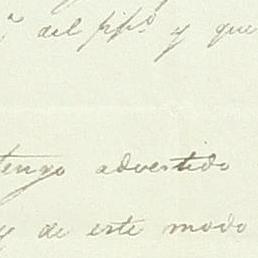 del y que
tengo advertido
y de este modo